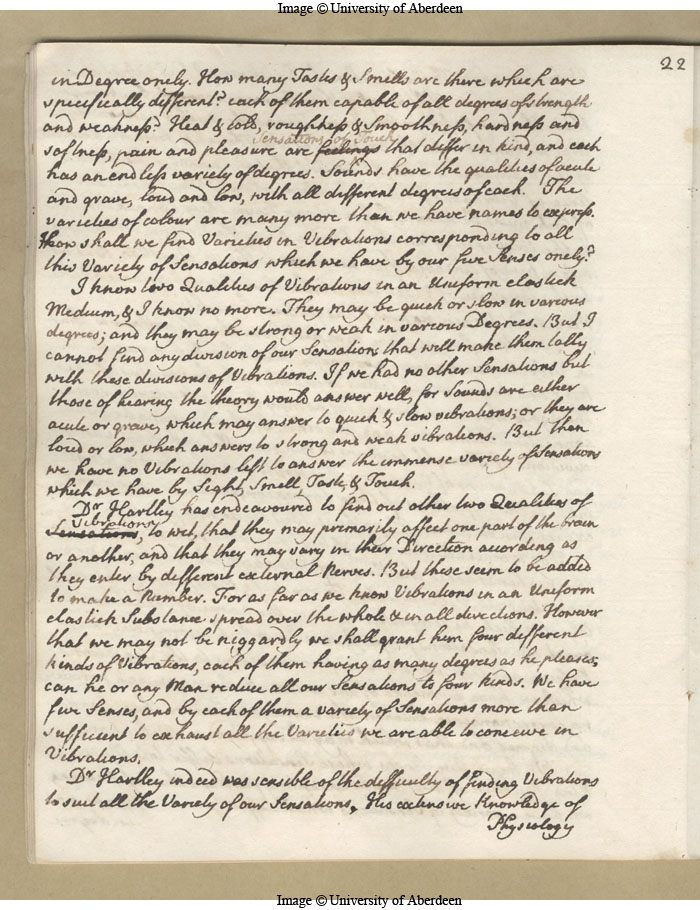 Image © University of Aberdeen
22
in Degree onely. How many Tasts & Smells are there which are
specifically different? each of them capable of all degrees of strength
and weakness? Heat & cold, roughness & Smoothness, hardness and
Sensations of Touch
softness, pain and pleasure are feelings that differ in kind, and each
has an endless variety of degrees. Sounds have the qualities of acute
and grave, loud and low, with all different degrees of each. The
varieties of colour are many more than we have names to express.
How shall we find Varieties in Vibrations corresponding to all
this Variety of Sensations which we have by our five Senses onely?
I know two Qualities of Vibrations in an Uniform elastick
Medium, & I know no more. They may be quick or slow in various
degrees; and they may be strong or weak in various Degrees. But I
cannot find any division of our Sensations that will make them tally
with these divisions of Vibrations. If we had no other Sensations but
those of hearing the theory would answer well, for Sounds are either
acute or grave, which may answer to quick & slow vibrations; or they are
loud or low, which answers to strong and weak vibrations. But then
we have no Vibrations left to answer the immense variety of Sensations
which we have by Sight, Smell, Taste, & Touch.
Dr Hartley has endeavoured to find out other two Qualities of
Vibrations
Sensations, to wit, that they may primarily affect one part of the brain
or another, and that they may vary in their Direction according as
they enter by different external Nerves. But these seem to be added
to make a Number. For as far as we know Vibrations in an Uniform
elastick Substance spread over the whole & in all directions. However
that we may not be niggardly we shall grant him four different
kinds of Vibrations, each of them having as many degrees as he pleases;
can he or any Man reduce all our Sensations to four kinds. We have
five Senses, and by each of them a variety of Sensations more than
sufficient to exhaust all the Varieties we are able to conceive in
Vibrations.
Dr Hartley indeed was sensible of the difficulty of finding Vibrations
to suit all the Variety of our Sensations. His extensive Knowledge of
Physiology
Image © University of Aberdeen